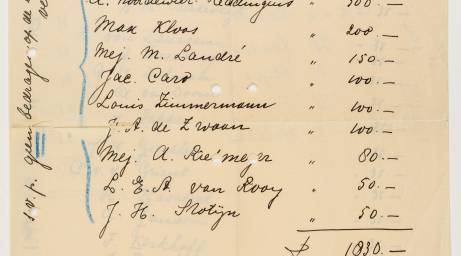 A. Noordewier Reddingius " 500.—
Max Kloos " 200.—
Mej. M. Landré " 150.—
Jac. Caro " 100.—
Louis Zimmermann " 100.—
J. A. de Zwaan " 100.—
Mej. A. Rie'mejer " 80.—
L. E. A. van Rooy " 50.—
J. H. Slotijn " 50.—
1830.—
s.v.p. geen bedragen op de